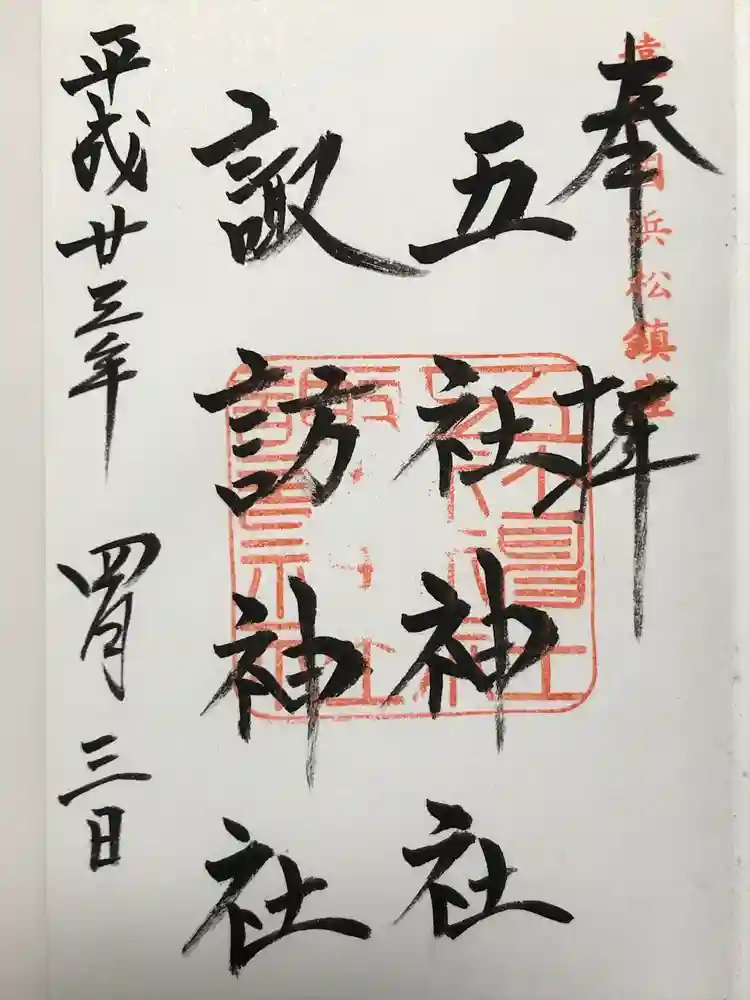 奉拝
遠州浜松鎮座
五社神社
諏訪神社
平成廿三年 四月 三日